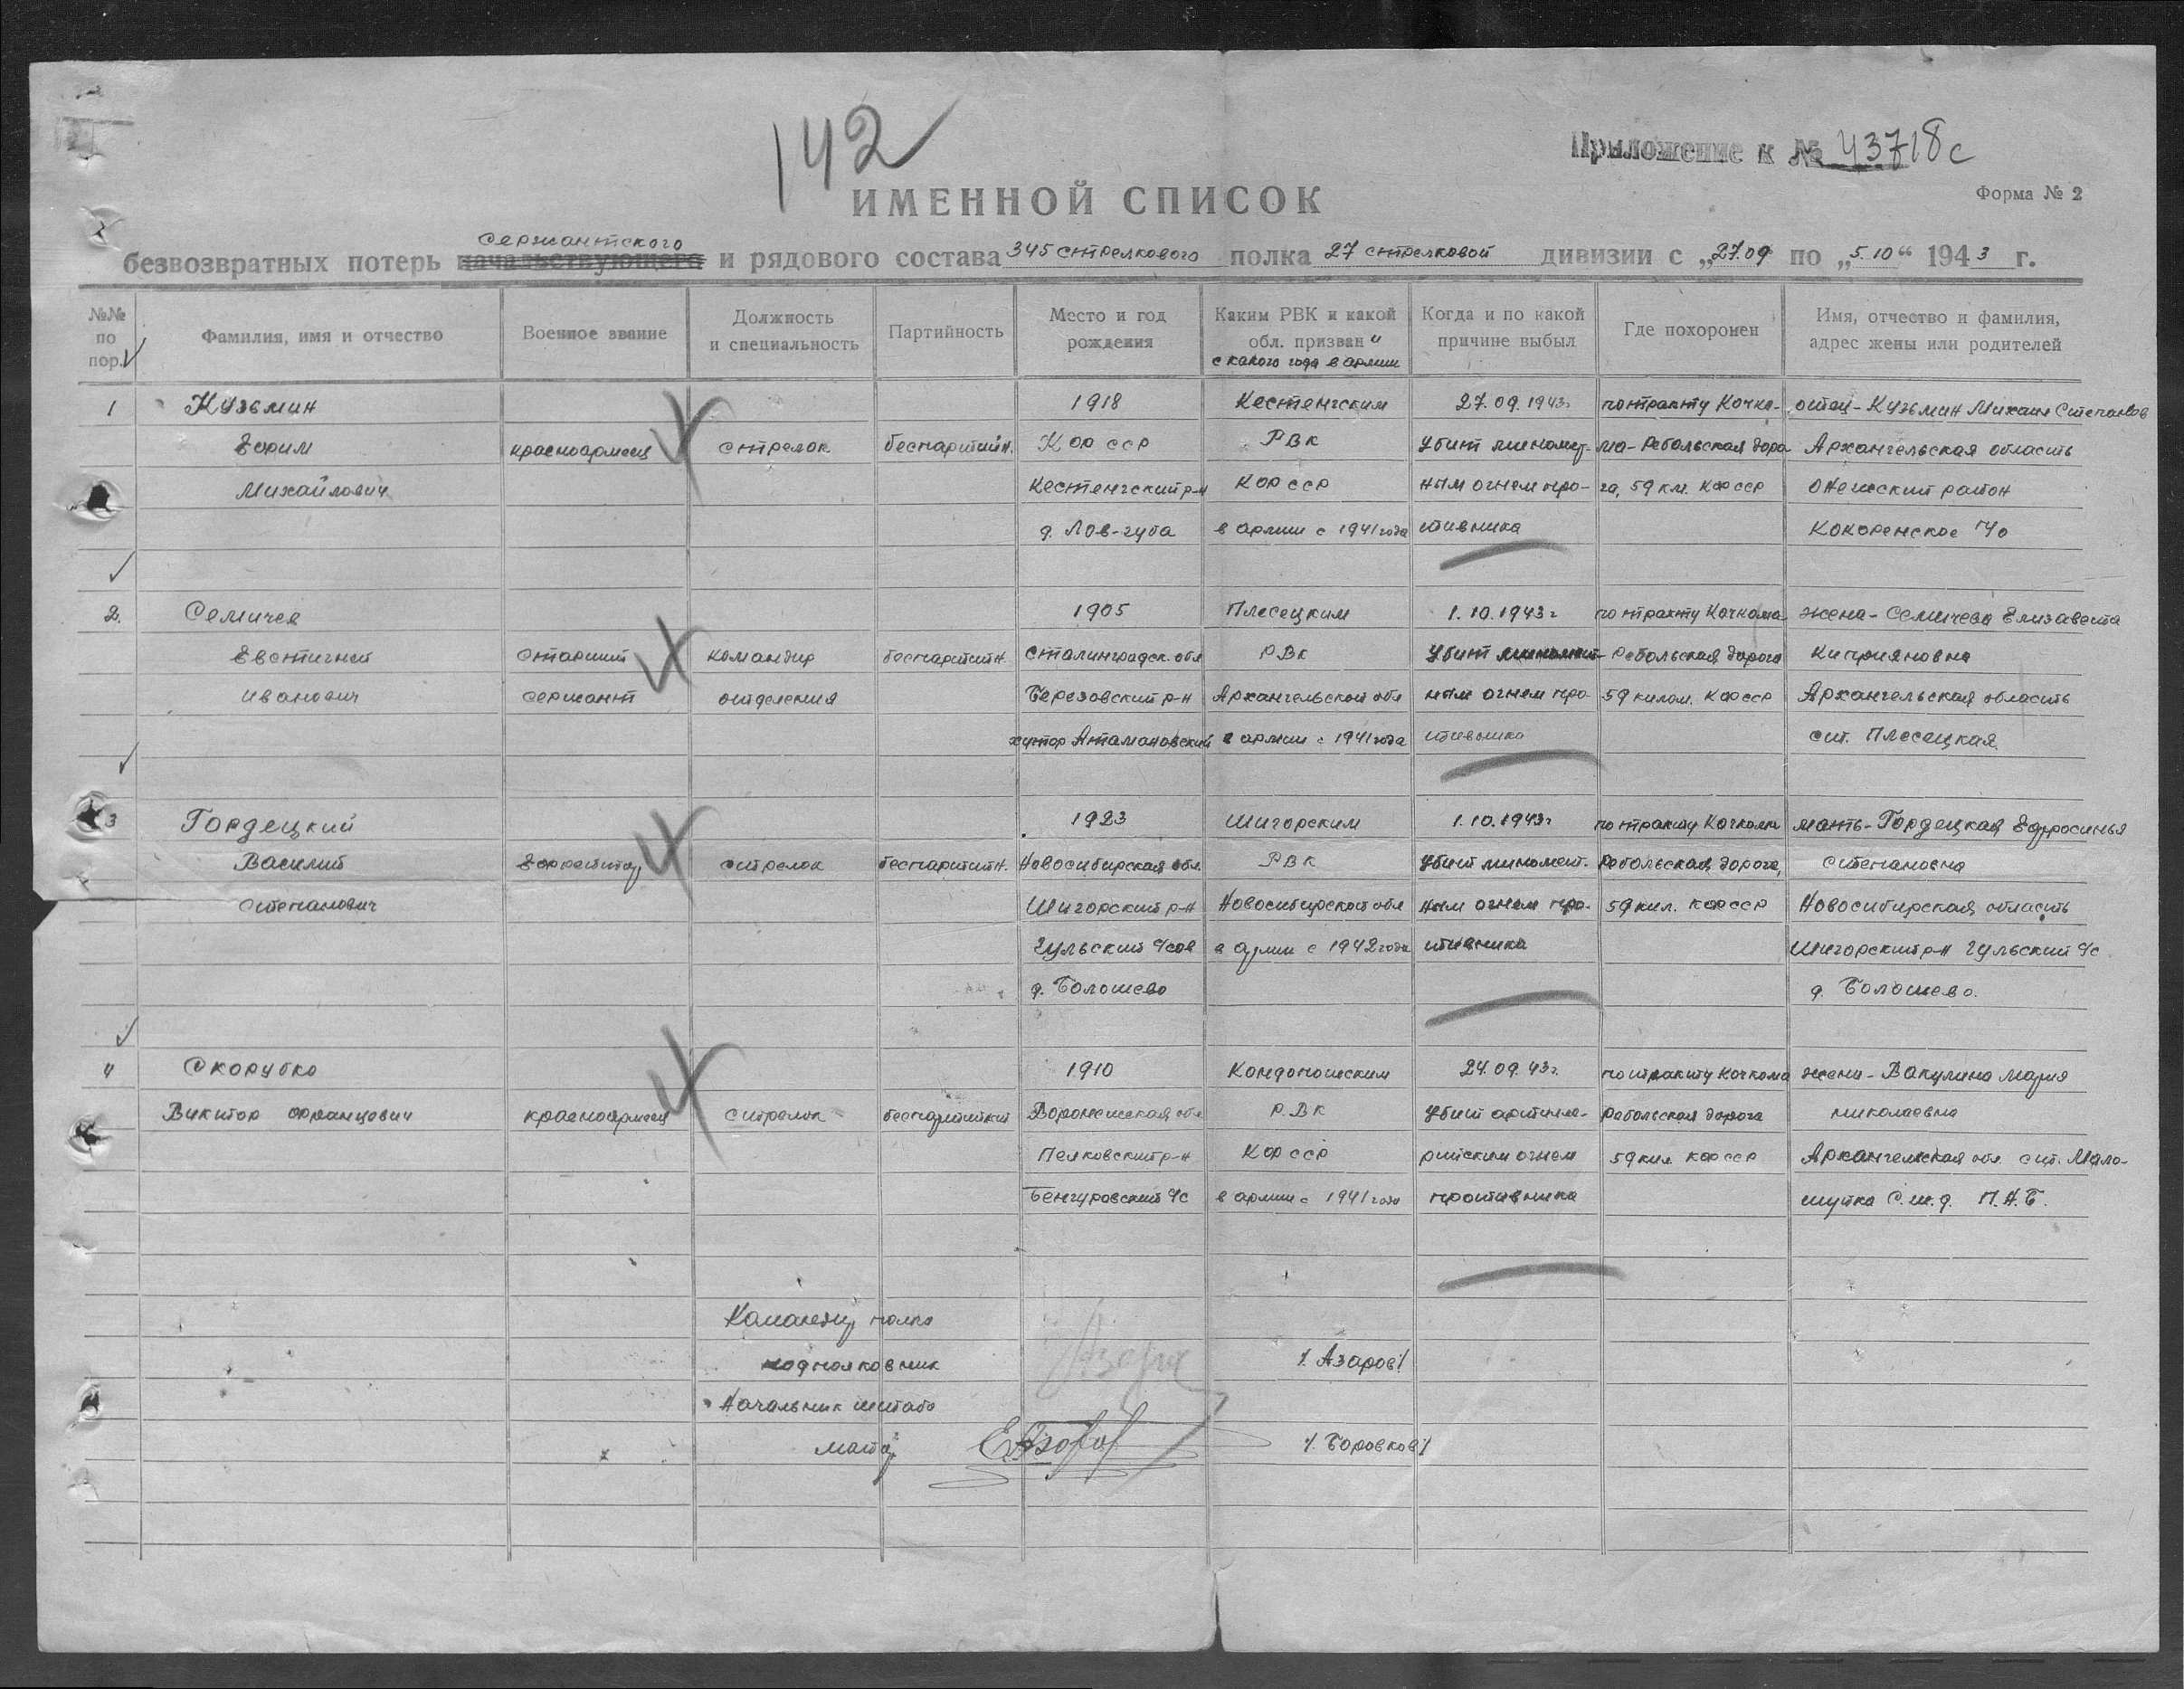 142
Приложение к № 43718с
ИМЕННОЙ СПИСОК
Форма № 2
сержантского
безвозвратных потерь начальствующего и рядового состава 345 стрелкового полка 27 стрелковой дивизии с „27.09 по „5.10“ 1943 г.
№№ по пор.
Фамилия, имя и отчество
Военное звание
Должность и специальность
Партийность
Место и год рождения
Каким РВК и какой обл. призван и с какого года в армии
Когда и по какой причине выбыл
Где похоронен
Имя, отчество и фамилия, адрес жены или родителей
1 Кузьмин 1918 Кестенгским 27.09.1943г по тракту Кочко- отец - Кузьмин Михаил Степанов
Ефим красноармеец стрелок беспартийн. К ФССР РВК Убит миномет- ма-Ребольская доро Архангельская область
Михайлович Кестенгский р-н КФССР ным огнем про- га, 59 км. КФССР Онежский район
д. Лов-губа в армии с 1941 года тивника Кокоренское ч/о
2. Семичев 1905 Плесецким 1.10.1943г по тракту Кочкома жена - Семичева Елизавета
Евстигней старший командир беспартийн. Сталинградск. обл РВК Убит миномет- Ребольская дорога Киприяновна
Иванович сержант отделения Березовский р-н Архангельской обл ным огнем про- 59 килом. КФССР Архангельская область
хутор Атамановский в армии с 1941 года тивника ст. Плесецкая
3 Гордецкий 1923 Шигорским 1.10.1943г по тракту Кочкома мать - Гордецкая Ефросинья
Василий Ефрейтор стрелок беспартийн. Новосибирская обл. РВК Убит миномет. Ребольская дорога, Степановна
Степанович Шигорский р-н Новосибирской обл ным огнем про- 59 кил. КФССР Новосибирская область
Гульский ч/сов в армии с 1942 года тивника Шигорский р-н Гульский ч/с
д. Болошево д. Болошево.
4 Скорубко 1910 Кондопожским 24.09.43г. по тракту Кочкома жена - Вакулина Мария
Виктор Францович красноармеец стрелок беспартийный Воронежская обл РВК Убит артилле- Ребольская дорога Николаевна
Пелковский р-н КФССР рийским огнем 59 кил. КФССР Архангельская обл. ст. Мало-
Бенгуровский ч/с в армии с 1941 года противника шуйка С.ж.д. П.Н.Б.
Командир полка
подполковник /. Азаров /
Начальник штаба
майор /. Боровков /